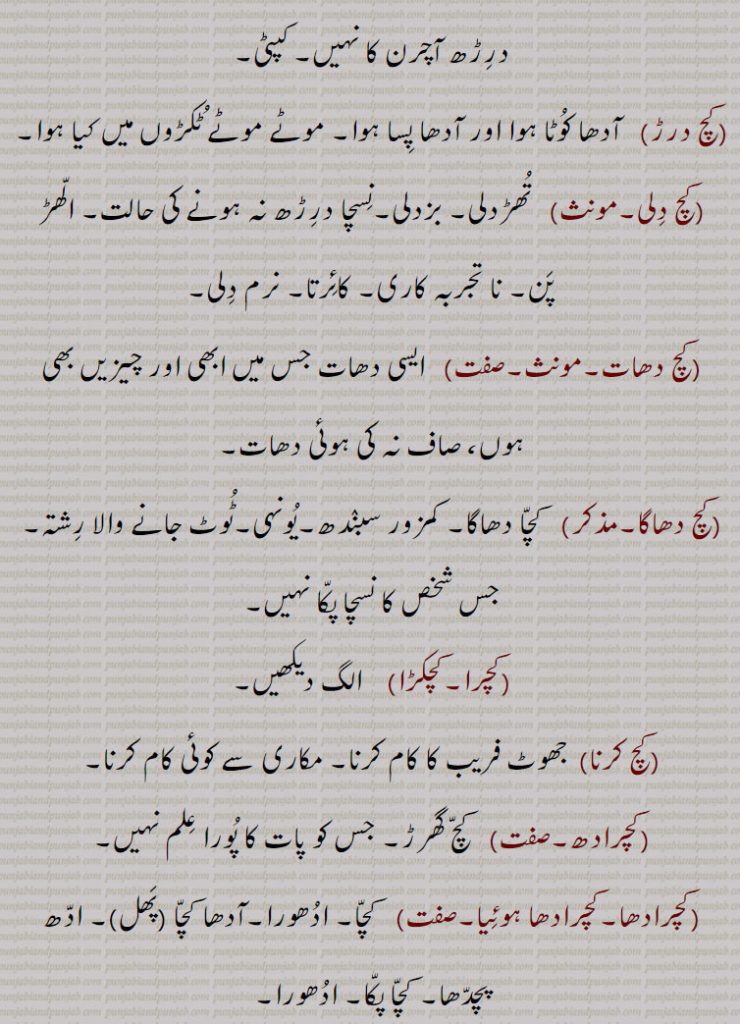 درِڑھ آچرن کا نہیں۔ کپٹی۔
(کچ درڑ) آدھا کُوٹا ہوا اور آدھا پِسا ہوا۔ موٹے موٹے ٹُکڑوں میں کیا ہوا۔
(کچ دِلی۔مونث) تُھڑدلی۔ بزدلی۔نِسچا درِڑھ نہ ہونے کی حالت۔ الّھڑ
پَن۔ نا تجربہ کاری۔ کائِرتا۔ نرم دِلی۔
(کچ دھات۔مونث۔صفت) ایسی دھات جس میں ابھی اور چیزیں بھی
ہوں، صاف نہ کی ہوئی دھات۔
(کچ دھاگا۔مذکر) کچّا دھاگا۔ کمزور سبنٚدھ۔یُونہی۔ٹُوٹ جانے والا رِشتہ۔
جس شخص کا نسچا پکّا نہیں۔
(کچرا۔کچکڑا) الگ دیکھیں۔
(کچ کرنا) جھوٹ فریب کا کام کرنا۔ مکاری سے کوئی کام کرنا۔
(کچرادھ۔صفت) کچّ گھرڑ۔ جس کو پات کا پُورا عِلم نہیں۔
(کچرادھا۔کچرادھا ہوئِیا۔صفت) کچّا۔ ادُھورا۔آدھا کچّا (پَھل)۔ ادّھ
پچدّھا۔ کچّا پکّا۔ ادُھورا۔